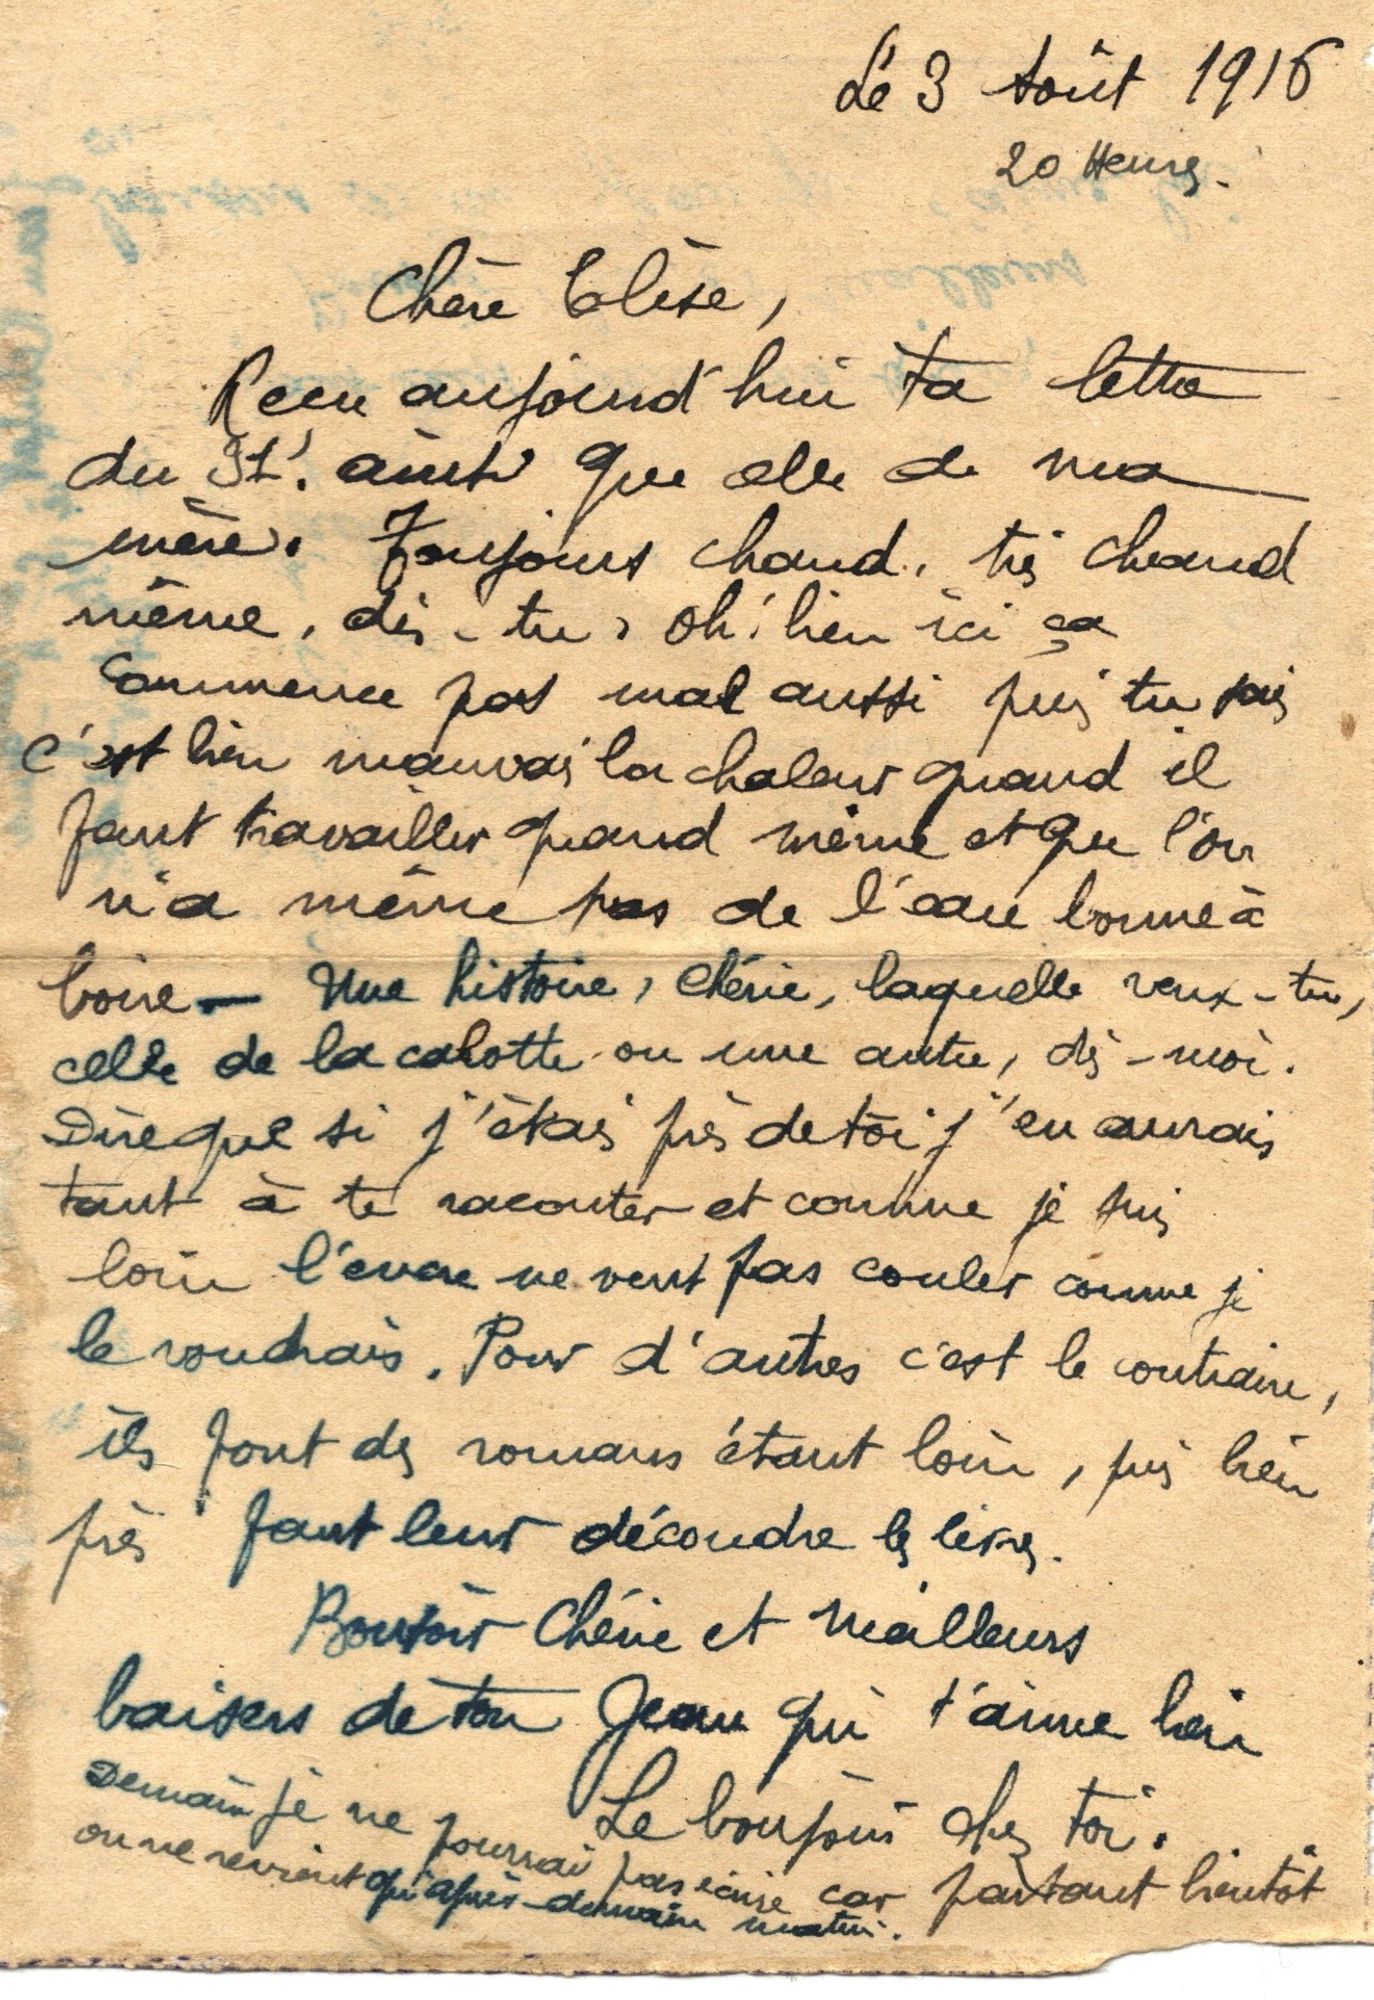 Le 3 Août 1916
20 Heures.
Chère Elise,
Reçu aujourd'hui ta lettre
du 31. ainsi que celle de ma
mère. Toujours chaud, très chaud
même, dis-tu, oh! bien ici ça
commence pas mal aussi puis tu sais
c'est bien mauvais la chaleur quand il
faut travailler quand même et que l'on
n'a même pas de l'eau bonne à
boire — Une histoire, chérie, laquelle veux-tu,
celle de la calotte ou une autre, dis-moi.
Dire que si j'étais près de toi j'en aurais
tant à te raconter et comme je suis
loin l'encre ne veut pas couler comme je
le voudrais. Pour d'autres c'est le contraire,
ils font des romans étant loin, puis bien
près faut leur découdre les lèvres.
Bonsoir Chérie et meilleurs
baisers de ton Jean qui t'aime bien
Le bonjour chez toi.
Demain je ne pourrai pas écrire car partant bientôt
on ne revient qu'après-demain matin.